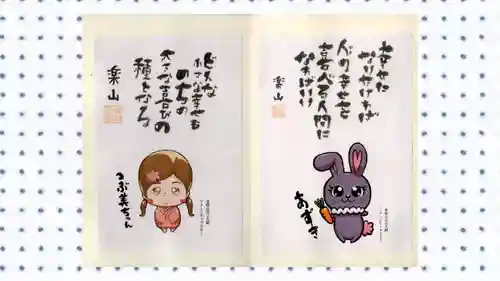 幸せに
なりたければ
人の幸せを
喜べる人間に
なればいい
楽山
あずき
どんな
小さな幸せも
のちの
大きな喜びの
種となる
楽山
つぶ美ちゃん